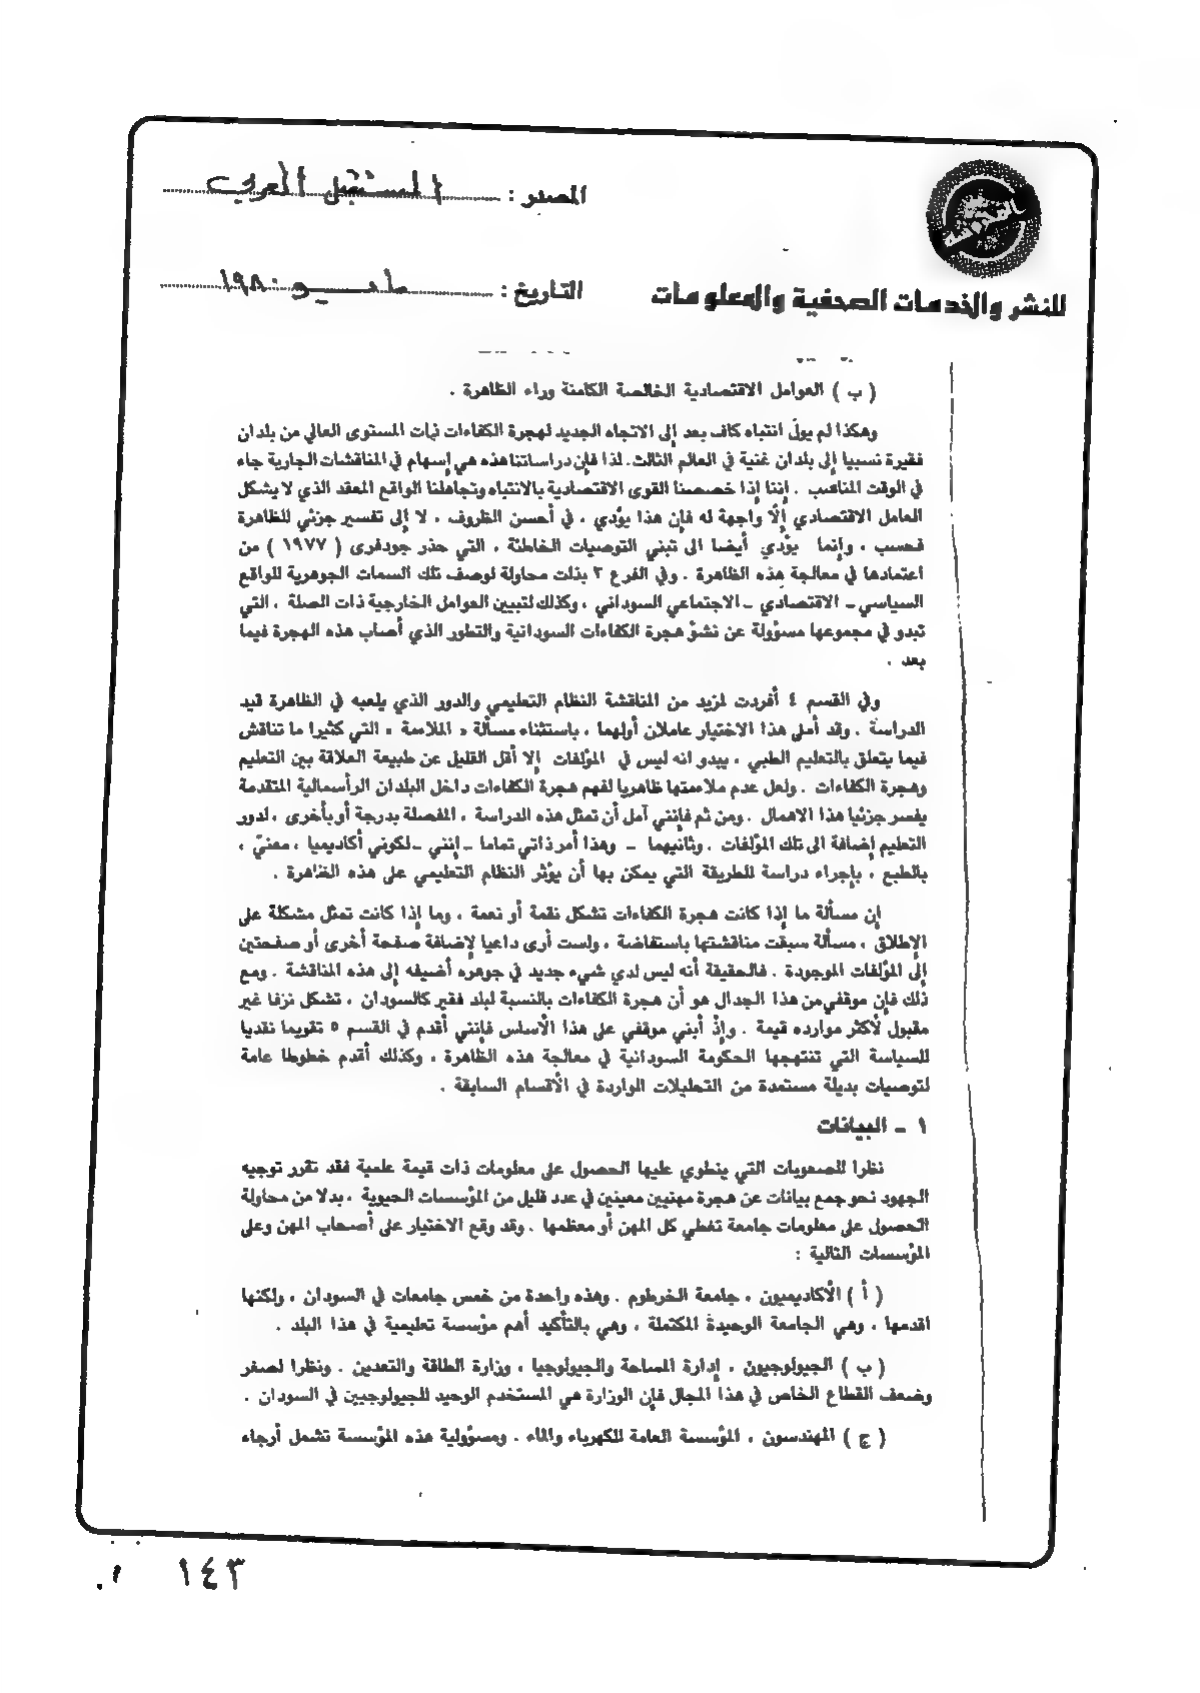 المصدر : المستقبل العربي
المحروسة
التاريخ : مايو ١٩٨٠
للنشر والخدمات الصحفية والمعلومات
( ب ) العوامل الاقتصادية الخالصة الكامنة وراء الظاهرة .
وهكذا لم يولَ انتباه كاف بعد إلى الاتجاه الجديد لهجرة الكفاءات ذات المستوى العالي من بلدان
فقيرة نسبيا إلى بلدان غنية في العالم الثالث. لذا فإن دراساتنا هذه هي إسهام في المناقشات الجارية جاء
في الوقت المناسب . إننا إذا خصصنا القوى الاقتصادية بالانتباه وتجاهلنا الواقع المعقد الذي لا يشكل
العامل الاقتصادي إلّا واجهة له فإن هذا يؤدي ، في أحسن الظروف ، لا إلى تفسير جزئي للظاهرة
فحسب ، وإنما يؤدي أيضا الى تبني التوصيات الخاطئة ، التي حذر جودفرى ( ١٩٧٧ ) من
اعتمادها في معالجة هذه الظاهرة . وفي الفرع ٣ بذلت محاولة لوصف تلك السمات الجوهرية للواقع
السياسي ـ الاقتصادي ـ الاجتماعي السوداني ، وكذلك لتبيين العوامل الخارجية ذات الصلة ، التي
تبدو في مجموعها مسؤولة عن نشؤ هجرة الكفاءات السودانية والتطور الذي أصاب هذه الهجرة فيما
بعد .
وفي القسم ٤ أفردت لمزيد من المناقشة النظام التعليمي والدور الذي يلعبه في الظاهرة قيد
الدراسة . وقد أملى هذا الاختيار عاملان أولهما ، باستثناء مسألة « الملاءمة » التي كثيرا ما تناقش
فيما يتعلق بالتعليم الطبي ، يبدو انه ليس في المؤلفات إلا أقل القليل عن طبيعة العلاقة بين التعليم
وهجرة الكفاءات . ولعل عدم ملاءمتها ظاهريا لفهم هجرة الكفاءات داخل البلدان الرأسمالية المتقدمة
يفسر جزئيا هذا الاهمال . ومن ثم فإنني آمل أن تمثل هذه الدراسة ، المفصلة بدرجة أو بأخرى ، لدور
التعليم إضافة الى تلك المؤلفات . وثانيهما ـ وهذا أمر ذاتي تماما ـ إنني ـ لكوني أكاديميا ، معنيّ ،
بالطبع ، بإجراء دراسة للطريقة التي يمكن بها أن يؤثر النظام التعليمي على هذه الظاهرة .
إن مسألة ما إذا كانت هجرة الكفاءات تشكل نقمة أو نعمة ، وما إذا كانت تمثل مشكلة على
الإطلاق ، مسألة سبقت مناقشتها باستفاضة ، ولست أرى داعيا لإضافة صفحة أخرى أو صفحتين
إلى المؤلفات الموجودة . فالحقيقة أنه ليس لدي شيء جديد في جوهره أضيفه إلى هذه المناقشة . ومع
ذلك فإن موقفي من هذا الجدال هو أن هجرة الكفاءات بالنسبة لبلد فقير كالسودان ، تشكل نزفا غير
مقبول لأكثر موارده قيمة . وإذْ أبني موقفي على هذا الأساس فإنني أقدم في القسم ٥ تقويما نقديا
للسياسة التي تنتهجها الحكومة السودانية في معالجة هذه الظاهرة ، وكذلك أقدم خطوطا عامة
لتوصيات بديلة مستمدة من التحليلات الواردة في الأقسام السابقة .
١ ـ البيانات
نظرا للصعوبات التي ينطوي عليها الحصول على معلومات ذات قيمة علمية فقد تقرر توجيه
الجهود نحو جمع بيانات عن هجرة مهنيين معينين في عدد قليل من المؤسسات الحيوية ، بدلا من محاولة
الحصول على معلومات جامعة تغطي كل المهن أو معظمها . وقد وقع الاختيار على أصحاب المهن وعلى
المؤسسات التالية :
( أ ) الأكاديميون ، جامعة الخرطوم . وهذه واحدة من خمس جامعات في السودان ، ولكنها
اقدمها ، وهي الجامعة الوحيدة المكتملة ، وهي بالتأكيد أهم مؤسسة تعليمية في هذا البلد .
( ب ) الجيولوجيون ، إدارة المساحة والجيولوجيا ، وزارة الطاقة والتعدين . ونظرا لصغر
وضعف القطاع الخاص في هذا المجال فإن الوزارة هي المستخدم الوحيد للجيولوجيين في السودان .
( ج ) المهندسون ، المؤسسة العامة للكهرباء والماء . ومسؤولية هذه المؤسسة تشمل أرجاء
١٤٣